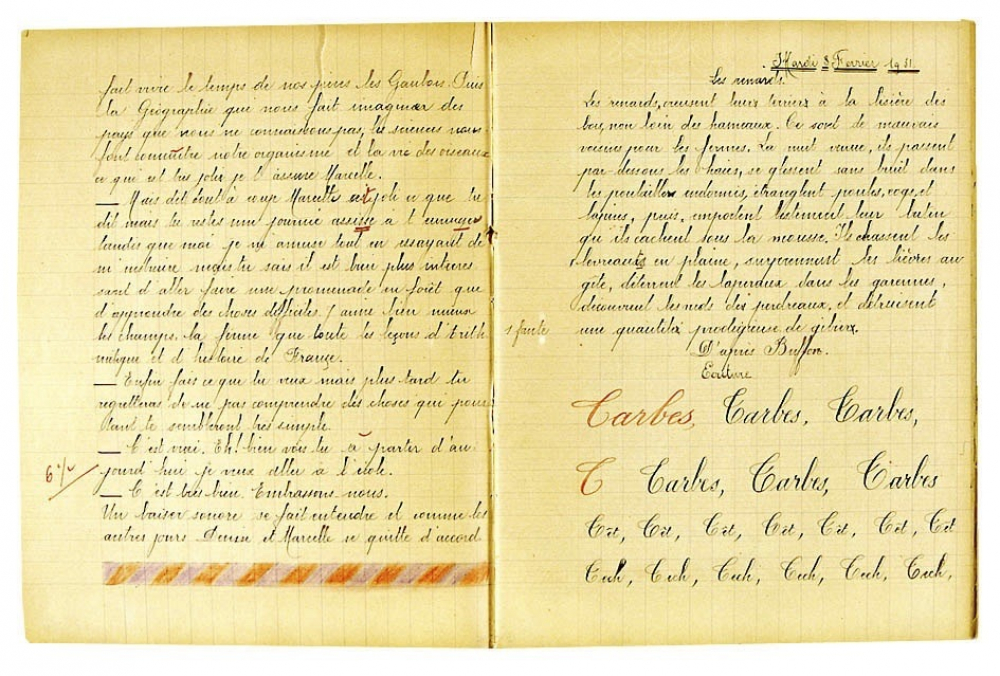 fait vivre le temps de nos pères les Gaulois. Puis
la Géographie que nous fait imaginer des
pays que nous ne connaissons pas, les sciences nous
font connaître notre organisme et la vie des oiseaux
ce qui est très joli je t'assure Marcelle.
— Mais dit tout à coup Marcelle est joli ce que tu
dit mais tu restes une journée assisse à t'ennuyer
tandis que moi je m'amuse tout en essayant de
m'instruire mais tu sais il est bien plus intéres
sant d'aller faire une promenade en forêt que
d'apprendre des choses difficiles. J'aime bien mieux
les champs. la ferme que toute les leçons d'Arith
métique et d'histoire de France.
— Enfin fais ce que tu veux mais plus tard tu
regretteras de ne pas comprendre des choses qui pour
tant te sembleront très simple.
— C'est vrai. Eh! bien vois tu à partir d'au
jourd'hui je veux aller à l'école.
6
— C'est très bien. Embrassons-nous.
Un baiser sonore se fait entendre et comme les
autres jours Denise et Marcelle se quitte d'accord
Mardi 8 Février 1951.
Les renards.
Les renards, creusent leurs terriers à la lisière des
bois, non loin des hameaux. Ce sont de mauvais
voisins pour les fermes. La nuit venue, ils passent
par dessous les haies, se glissent sans bruit dans
les poulaillers endormis, étranglent poules, coqs, et
lapins, puis, emportent lestement leur butin
qu'ils cachent sous la mousse. Ils chassent les
levreauts en plaine, surprennent les lièvres au
gîte, déterrent les lapereaux dans les garennes,
découvrent les nids des perdreaux, et détruisent
1 faute
une quantité prodigieuse de gibier.
D'après Buffon.
Ecriture
Tarbes, Tarbes, Tarbes,
T Tarbes, Tarbes, Tarbes
Têt, Têt, Têt, Têt, Têt, Têt, Têt
Tech, Tech, Tech, Tech, Tech, Tech,